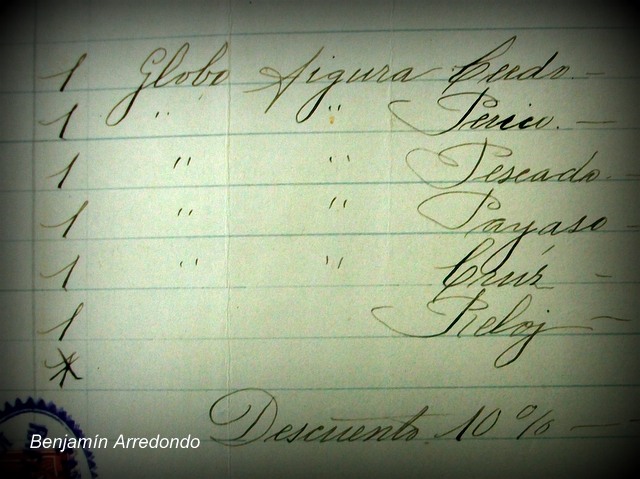 1 Globo figura Cerdo -
1 " " Perico. -
1 " " Pescado.
1 " " Payaso -
1 " " Crúz -
1 Reloj -
Descuento 10 % -
Benjamín Arredondo